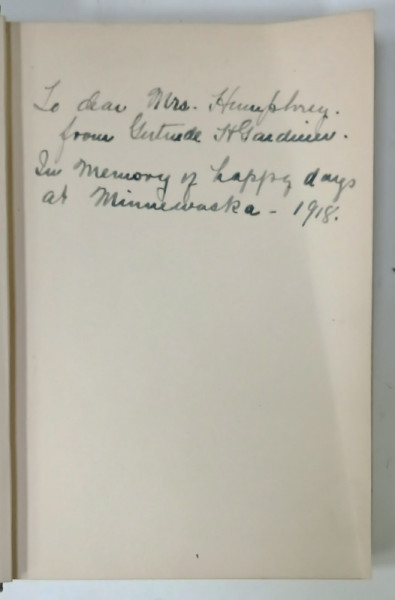 To dear Mrs. Humphrey.
from Gertrude H Gardiner.
In Memory of happy days
at Minnewaska - 1918.